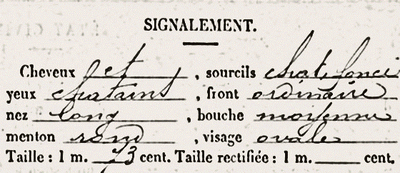 SIGNALEMENT.
Cheveux et , sourcils chat. foncé
yeux chatains , front ordinaire
nez long , bouche moyenne
menton rond , visage ovale
Taille : 1 m. 73 cent. Taille rectifiée : 1 m. cent.